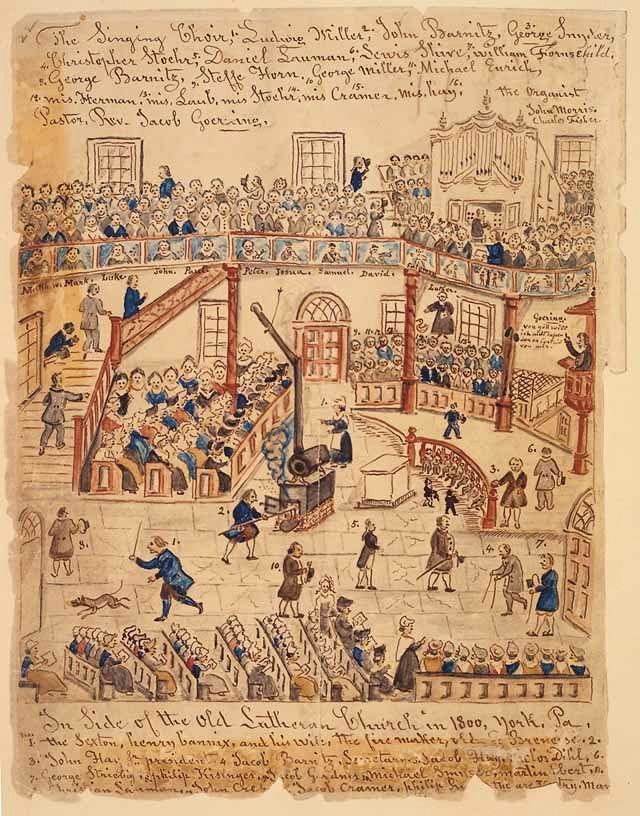 The Singing Choir, 1. Ludwig Miller, 2. John Barnitz, 3. George Snyder,
4. Christopher Stoehr, 5. Daniel Lauman, 6. Lewis Shive, 7. William Fornshild,
8. George Barnitz, 9. Steffe Horn, 10. George Miller, 11. Michael Eurich,
12. mis. Herman, 13. mis, Laub, mis Stoehr, 14. mis Cramer, 15. Mis. hay, 16. the Organist
John Morris.
Charles Fisher.
Pastor, Rev. Jacob Goering,
Mark Luke John. Paul. Peter, Josua, Samuel, David.
Luther,
Goering,
von gott will
ich nicht
9. 11.
1.
2.
3.
6.
5.
4.
7.
8.
1.
10.
In Side of the Old Lutheran Church in 1800, York, Pa,
1. the Sexton, henry bannix, and his wife, the fire maker, 2.
3. John Hay president 4. Jacob Barnitz, Secretary 5. Jacob Hay, Dihl, 6.
7. George Philip Michael martin Ebert,
Lauman, John Jacob Cramer, philip the